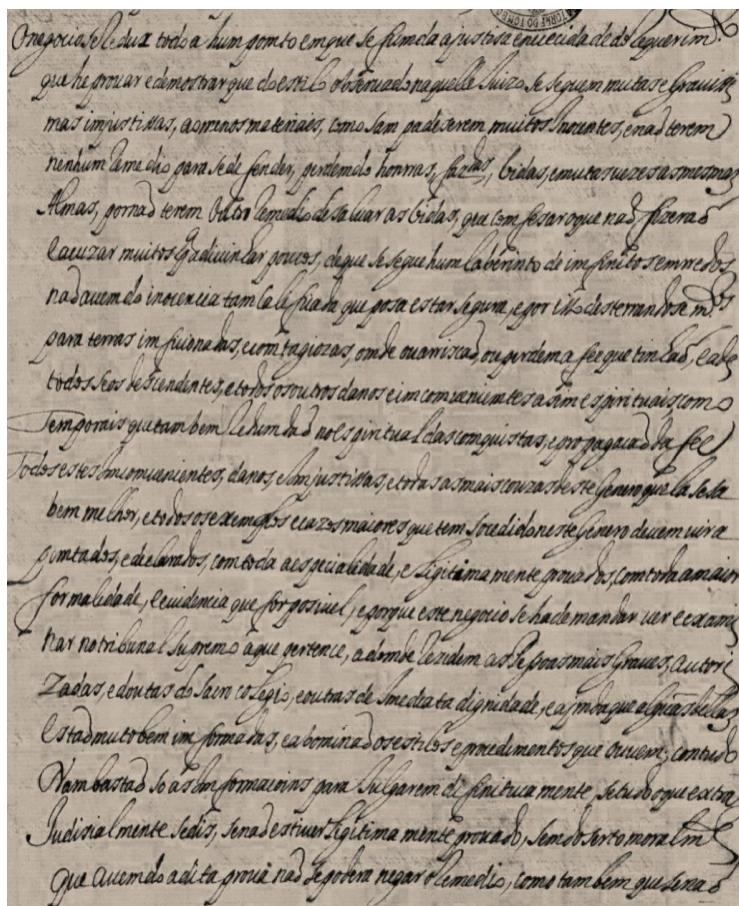 TORRE DO TOMBO
O negocio se Redux todo a hum pomto em que se fumda a justisa emvecida de do Requerim.to
que he provar e demostrar que do estilo observado naquelle Juizo se seguem mutas e Gravissi
mas imjustissas, ao menos materiais, como sam padeserem muitos Inosentes, e naõ terem
nenhum Remedio para se defender, perdemdo homrras, fazdas, bidas, e mutas vezes as mesmas
Almas, por naõ terem outro Remedio de salvar as bidas, que comfesar o que naõ fizeraõ
e acuzar muitos p.a adivinhar poucos, de que se segue hum laberinto de imfinitos emrredos,
naõ avemdo inocencia tam calificada que posa estar segura, e por isso desterrandose m.tos
para terras imficionadas, e comtagiozas, omde ou arriscaõ, ou perdem a fee que tinhaõ, e a de
todos seos desemdentes, e todos os outros danos e imcomvenientes asim espirituais, como
Temporais que tambem Redumdaõ no espiritual das comquistas, e propagaçaõ da fee
Todos estes Imcomvenientes, danos, e Imjustissas, e todas as mais couzas deste Genero que la se sabe
bem melhor, e todos os exemplos e cazos maiores que tem socedido neste Genero devem vir a
pomtados, e declarados, com toda a especialidade, e legitimamente provados, com toda a maior
formalidade, e evidencia que for posivel, e porque este negocio se ha de mandar ver e exami
nar no tribunal supremo a que pertence, a domde Rezidem as Pesoas mais Graves, autori
zadas, e doutas do Sacro colegio, e outras de Imediata dignidade, e aimda que algũas dellas
estaõ muto bem imformadas, e abominaõ os estilos e procedimentos que ouvem; comtudo
Nam bastaõ so as Imformacoins para Julgarem difinitivamente, se tudo o que extra
Judisialmente se dis, se naõ estiver legitimamente provado, semdo serto moralm.te
que avemdo a dita prova naõ se podera negar o Remedio, como tambem que se naõ